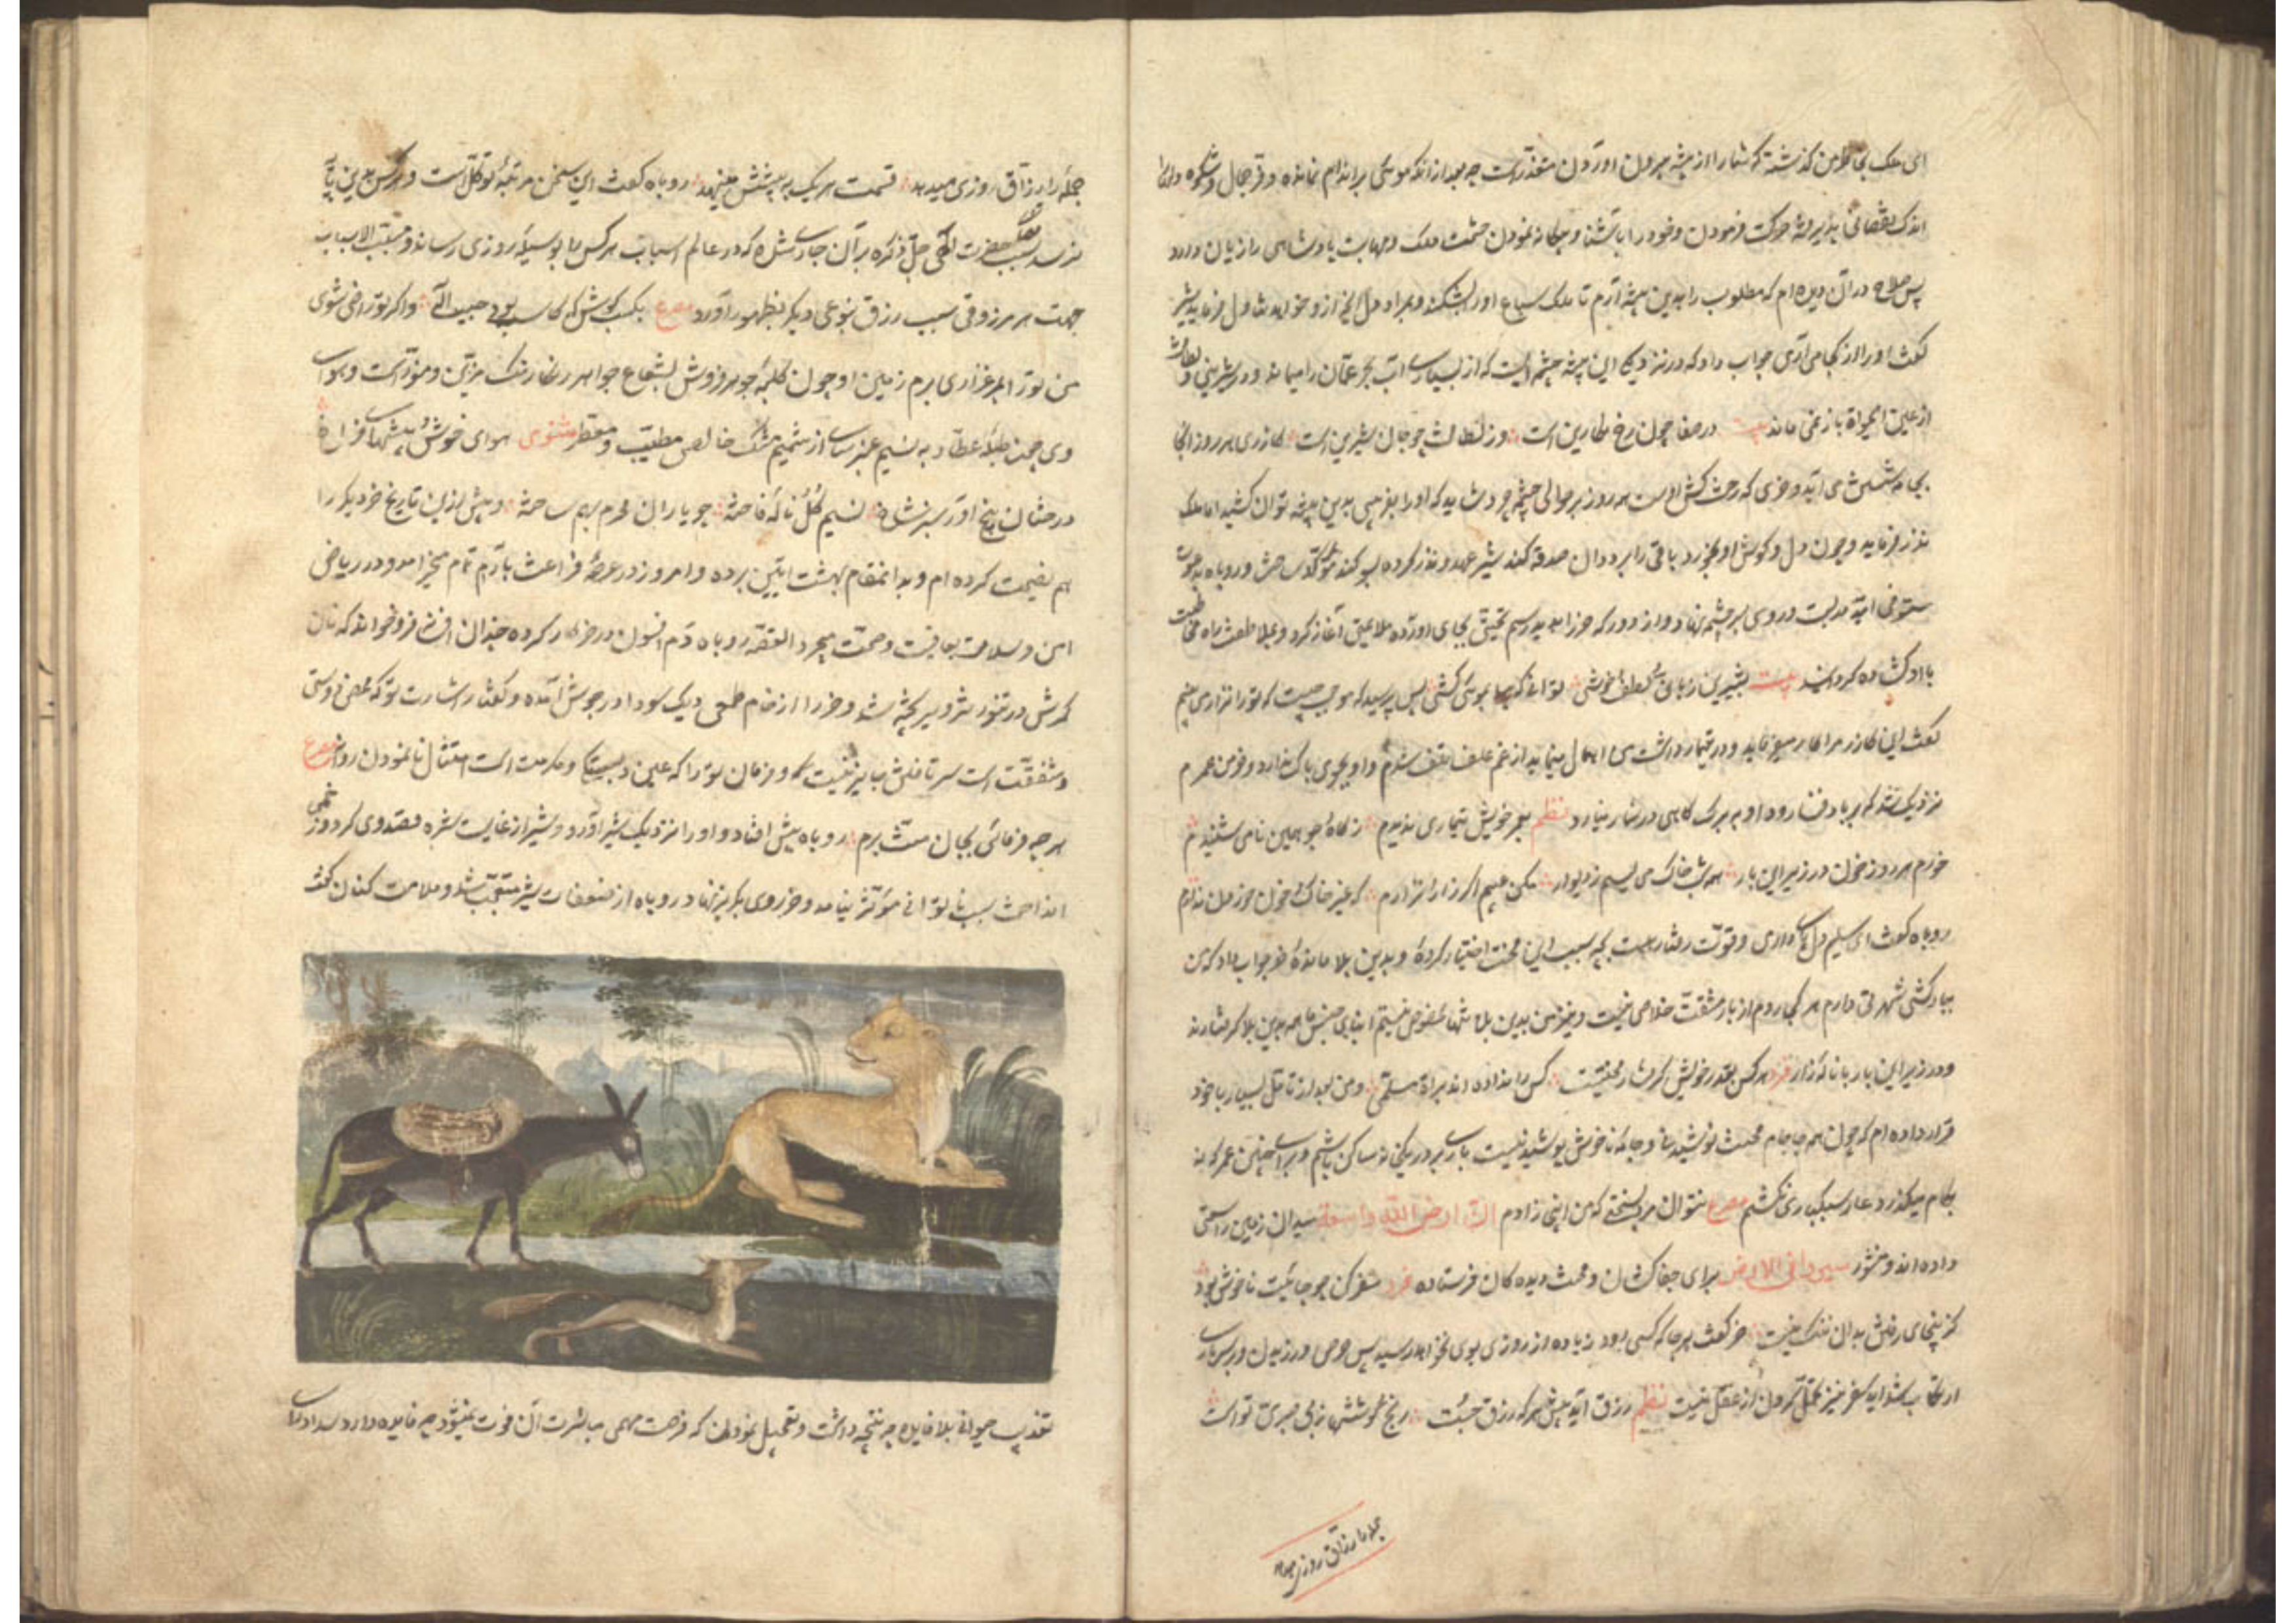 ای ملک بخاطر من گذشته که شما را از بیشه بیرون آوردن متعذر است چه بعد از آنکه موئی بر اندام نمانده و فر جمال و شکوه
اندک نقصانی پذیرفته حرکت فرمودن و خود را بآشنا و بیگانه نمودن حشمت ملک و مهابت پادشاهی را زیان دارد
پس صلاح در آن دیده‌ام که مطلوب را بدین بیشه آرم تا ملک سباع او را بشکند و بمراد دل آنچه از او خواهد تناول فرماید شیر
گفت او را از کجا می‌آری جواب داد که در نزدیکی این بیشه چشمه‌ایست که از بسیاری آب بحر عمان را میماند و در شیرینی و لطافت
از عین الحیوة باز نمی‌ماند بیت در صفا چون رخ نگارین است وز لطافت چو جان شیرین است گازری هر روز آنجا
بجامه شستن می‌آید و خری که رخت کش اوست همه روز بر حوالی چشمه چرد شاید که او را بفریبی بدین بیشه توان کشید اما ملک
نذر فرماید و چون دل و گوش او بخورد باقی را بر ددان صدقه کند شیر عهد و نذر کرده بسوگند مؤکد ساخت و روباه
روی بر چشمه نهاد و از دور که خر را بدید رسم تحیتی بجای آورده ملاعبتی آغاز کرد و بملاطفت راه
با او گشاده کردانید بیت بشیرین زبانی و لطف و خوشی توانی که پیلی بموئی کشی پس پرسید که موجب چیست که تو را نزار می‌بینم
گفت این گازر مرا کار میفرماید و در تیمار داشت من اهمال مینماید از غم علف تلف شدم و او بجوی باک ندارد و خرمن عمرم
نزدیک شد که بر باد فنا رود او به برگ کاهی در شمار نیارد نظم بعمر خویش تیماری ندیدم ز کاه و جو همین نامی شنیدم
خورم هر روز خون در زیر این بار همه شب خاک می‌لیسم ز دیوار مکن عیبم اگر زار و نزارم که غیر خاک و خون خوردن ندارم
روباه گفت ای سلیم دل پای داری و قوت رفتار هست بچه سبب این محنت اختیار کردۀ و بدین بلا ماندۀ خر جواب داد که من
ببارکشی شهرتی دارم هر کجا روم از بار مشقت خلاصی نیست و نیز من بدین بلا تنها مخصوص نیستم ابنای جنس ما همه بدین بلا گرفتارند
و در زیر این بار با نالۀ زار فرد هر کس بقدر خویش گرفتار محنتست کس را نداده‌اند برات مسلمی و من بعد از تامل بسیار با خود
قرار داده‌ام که چون همه جا جام محنت نوشیدنی و جامۀ ناخوش پوشیدنیست باری بر در یکی خانه ساکن باشم و برای چنین عمر که نه
بکام میگذرد عار سبکباری نکشم مصرع نتوان مرد بسختی که من اینجا زادم ان ارض الله واسعة میدان زمین را وسعتی
داده‌اند و منشور سیروا فی الارض برای جفاکشان و محنت دیدگان فرستاده فرد سفر کن چو جایت ناخوش بود
کزینجای رفتن بدان ننگ نیست خر گفت هر جا که کسی رود زیاده از روزی بوی نخواهد رسید پس حرص ورزیدن و بر سر بار
ارتکاب شداید سفر نیز تحمل کردن از عقل نیست نظم رزق آید پیش هر که رزق جست رنج کوششها ز بی صبری تو است
جمله را رزاق روزی میدهد
جمله را رزاق روزی میدهد قسمت هر یک به پیشش مینهد روباه گفت این سخن مرتبۀ توکل است و هر کس بدین پایه
نرسد حضرت الهی جل ذکره بر آن جاری شده که در عالم اسباب هر کس را بوسیلۀ روزی رساند و مسبب الاسباب
جهت هر مرزوقی سبب رزق بنوعی دیگر بظهور آورد مصرع بکسب کوش که کاسب بود حبیب اله و اگر تو راضی شوی
من تو را بمرغزاری برم زمین او چون کلبۀ جوهر فروش بشعاع جواهر رنگارنگ مزین و منور است و هوای
وی چون طبلۀ عطار به نسیم عنبر سای از شمیم مشک خالص مطیب و معطر مثنوی هوای خوش و بیشهای فراخ
درختان بیخ آور سبز شاخ نسیم گل و نالۀ فاخته چو یاران محرم بهم ساخته و پیش ازین تاریخ خر دیگر را
هم نصیحت کرده‌ام و بدانمقام بهشت آیین برده و امروز در عرصۀ فراغت بآرام تمام میخرامد و در ریاض
امن و سلامت بعافیت و صحت میچرد القصه روباه دم افسون در خر کار کرده چندان افسانه فرو خواند که نان
مکرش در تنور تزویر پخته شد و خر را از خام طمعی دیک سودا در جوش آمده و گفت از اشارت تو که محض دوستی
و شفقت است سر تافتن جایز نیست و فرمان تو را که عین دلبستگی و مکرمت است امتثال نانمودن روا نه مصرع
هر چه فرمائی بجان منت برم روباه پیش افتاد و او را نزدیک شیر آورد و شیر از غایت شره قصد وی کرد و زخمی
انداخت بسبب ناتوانی مؤثر نیامد و خر روی بگریز نهاد روباه از ضعف شیر متعجب شد و ملامت کنان گفت
تعذیب حیوانی بلا فایده چه نتیجه داشت و تعجیل نمودن که فرصت مهمی مباشرت آن فوت نمیشود چه فایده دارد